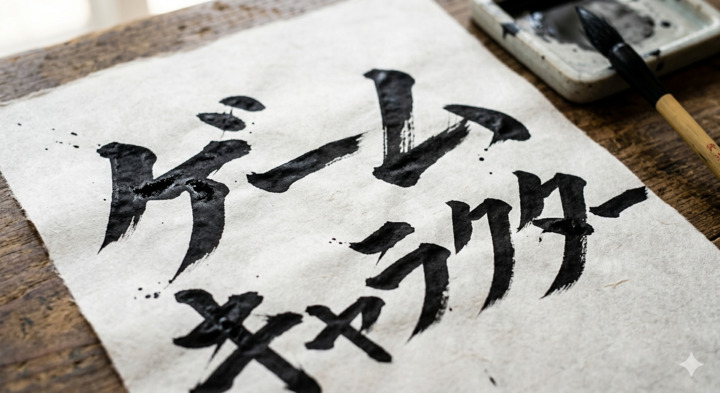 ゲーム
キャラクター